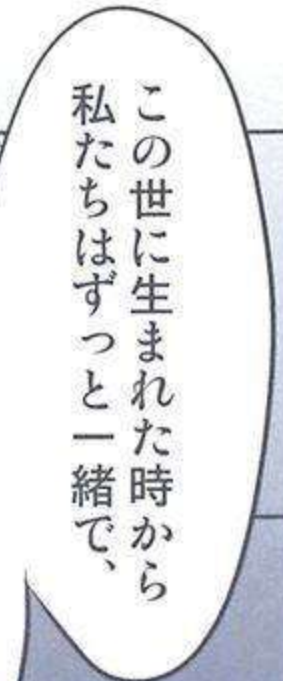 この世に生まれた時から
私たちはずっと一緒で、